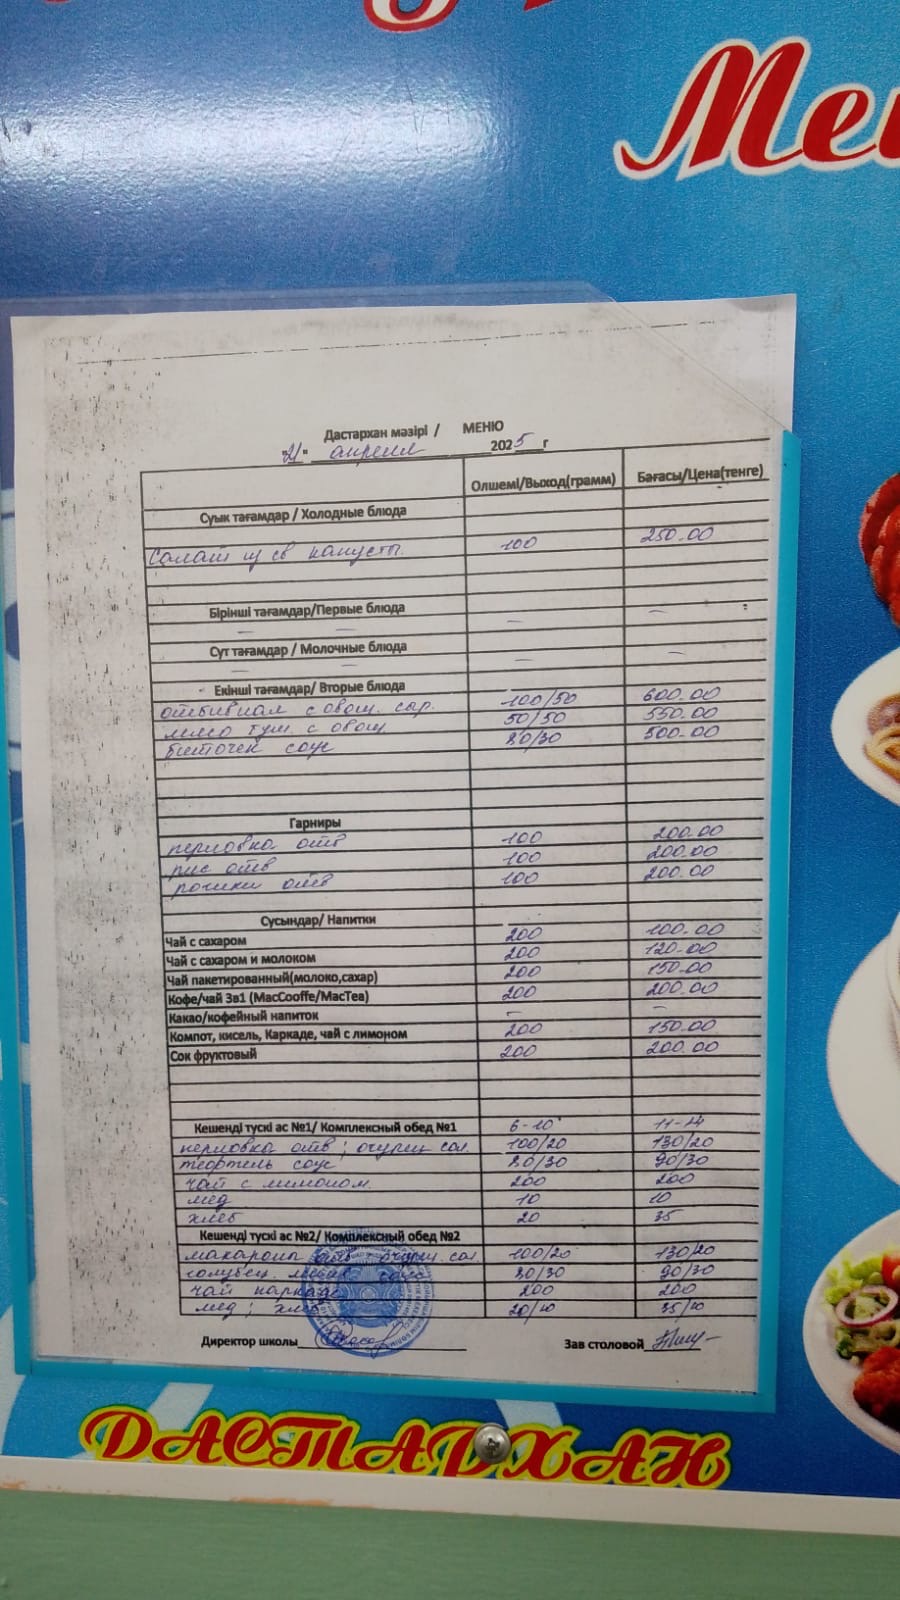 Ме
Дастархан мәзірі / МЕНЮ
"21" апреля 2025 г
Олшемі/Выход(грамм) Бағасы/Цена(тенге)
Суық тағамдар / Холодные блюда
Салат из св капусты. 100 250-00
Бірінші тағамдар/Первые блюда
— — — —
Сут тағамдар / Молочные блюда
— — — —
Екінші тағамдар/ Вторые блюда
отбивная с овощ. сыр. 100/50 600.00
мясо туш. с овощ. 50/50 550.00
биточек соус 80/30 500-00
Гарниры
перловка отв 100 200.00
рис отв 100 200.00
рожки отв 100 200.00
Сусындар/ Напитки
Чай с сахаром 200 100-00
Чай с сахаром и молоком 200 120-00
Чай пакетированный(молоко,сахар) 200 150-00
Кофе/чай 3в1 (MacCooffe/MacTea) 200 200.00
Какао/кофейный напиток — —
Компот, кисель, Каркаде, чай с лимоном 200 150.00
Сок фруктовый 200 200.00
Кешенді тускі ас №1/ Комплексный обед №1 6-10 11-14
перловка отв ; огурец сол. 100/20 130/20
тефтель соус 80/30 90/30
чай с лимоном. 200 200
мёд 10 10
хлеб 20 35
Кешенді тускі ас №2/ Комплексный обед №2
макароны отв огурец сол. 100/20 130/20
голубец 80/30 90/30
чай каркаде 200 200
мёд ; хлеб 20/10 35/10
Директор школы Зав столовой
ДАСТАРХАН